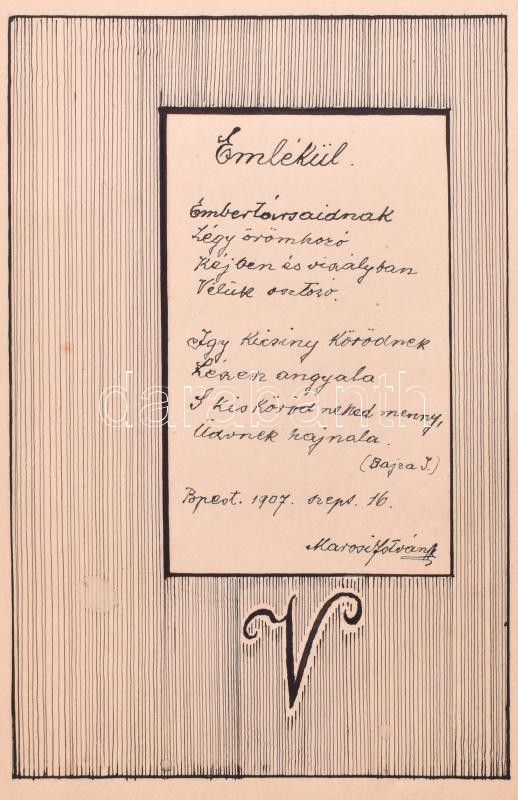 Emlékül.
Embertársaidnak
Légy örömhozó
Kéjben és viszályban
Vélük osztozó.
Igy kicsiny körödnek
Lészen angyala
S kis köröd neked menny,
Üdvnek hajnala.
(Bajza J.)
Bpest. 1907. szept. 16.
Marosi István
V
darabanth
darabanth
darabanth